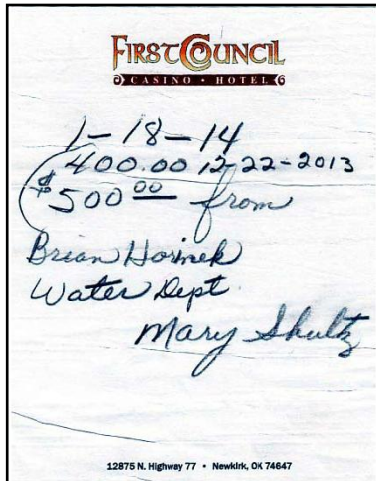 FIRST COUNCIL
CASINO • HOTEL
1-18-14
400.00 12-22-2013
$500 00 from
Brian Hornek
Water Dept
Mary Shultz
12875 N. Highway 77 • Newkirk, OK 74647